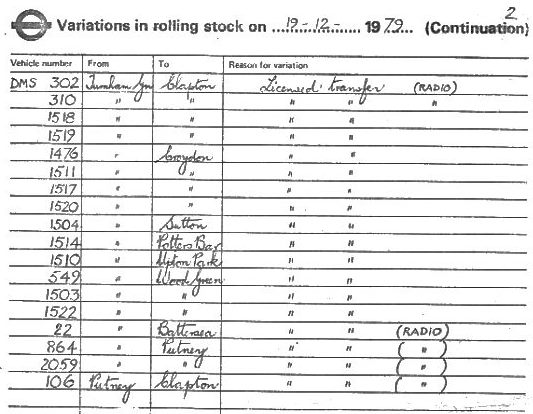 2
Variations in rolling stock on ...19-12-...... 1979... (Continuation)
Vehicle number From To Reason for variation
DMS 302 Turnham Gn Clapton Licensed transfer (RADIO)
310 " " " " "
1518 " " " "
1519 " " " "
1476 " Croydon " "
1511 " " " "
1517 " " " "
1520 " " " "
1504 " Sutton " "
1514 " Potters Bar " "
1510 " Upton Park " "
549 " Wood Green " "
1503 " " " "
1522 " " " "
22 " Battersea " " (RADIO)
864 " Putney " " ( " )
2059 " " " " ( " )
106 Putney Clapton " " ( " )